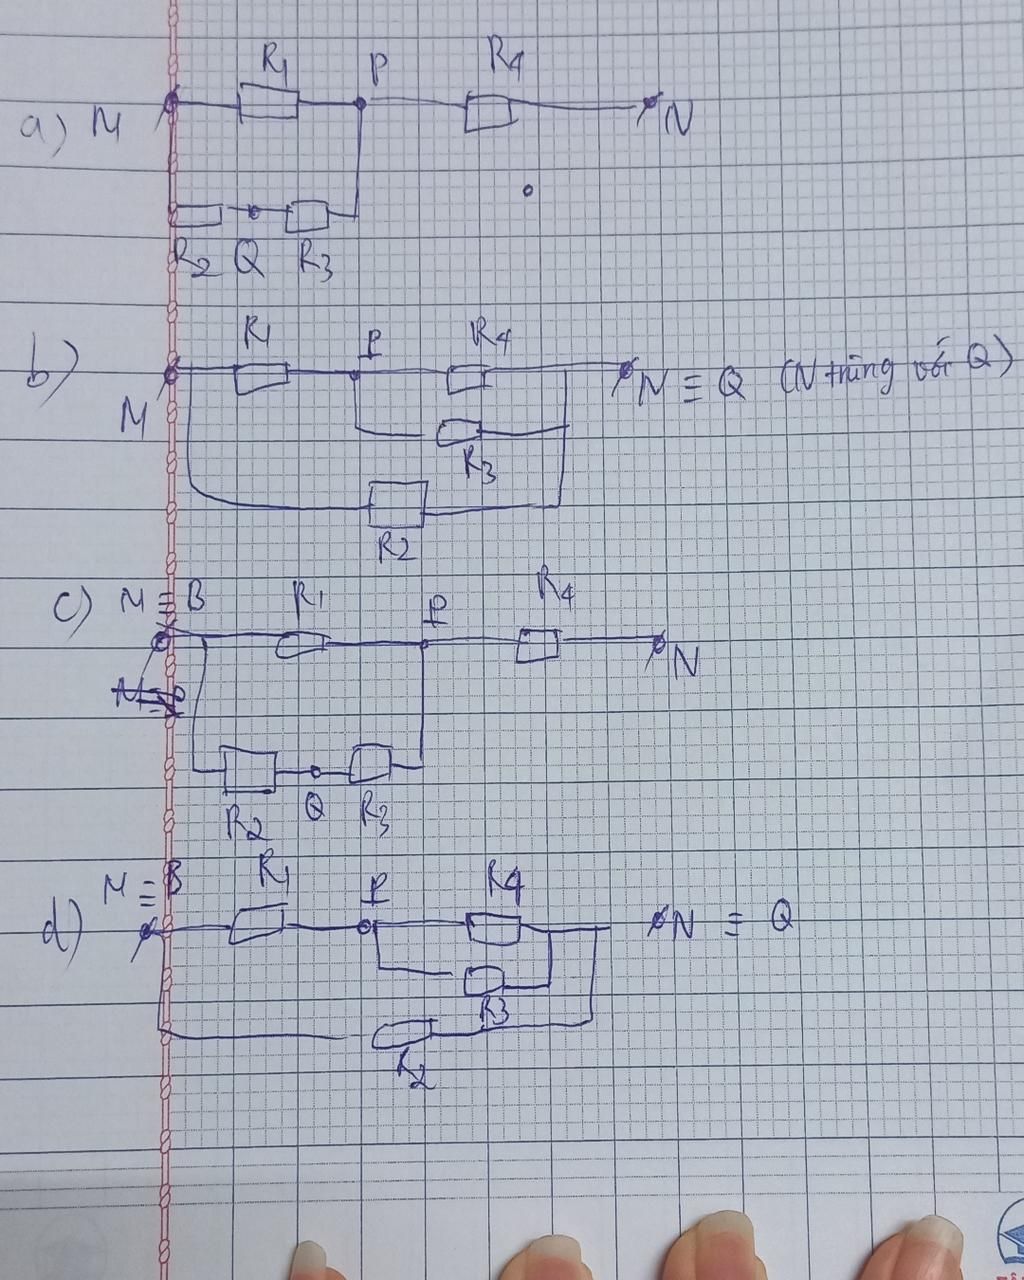 R1 P R4
a) M N
R2 Q R3
b) R1 P R4
M N ≡ Q (N trùng với Q)
R3
R2
c) M ≡ B R1 P R4
N
R2 Q R3
M ≡ B R1 P R4
d) N ≡ Q
R3
R2